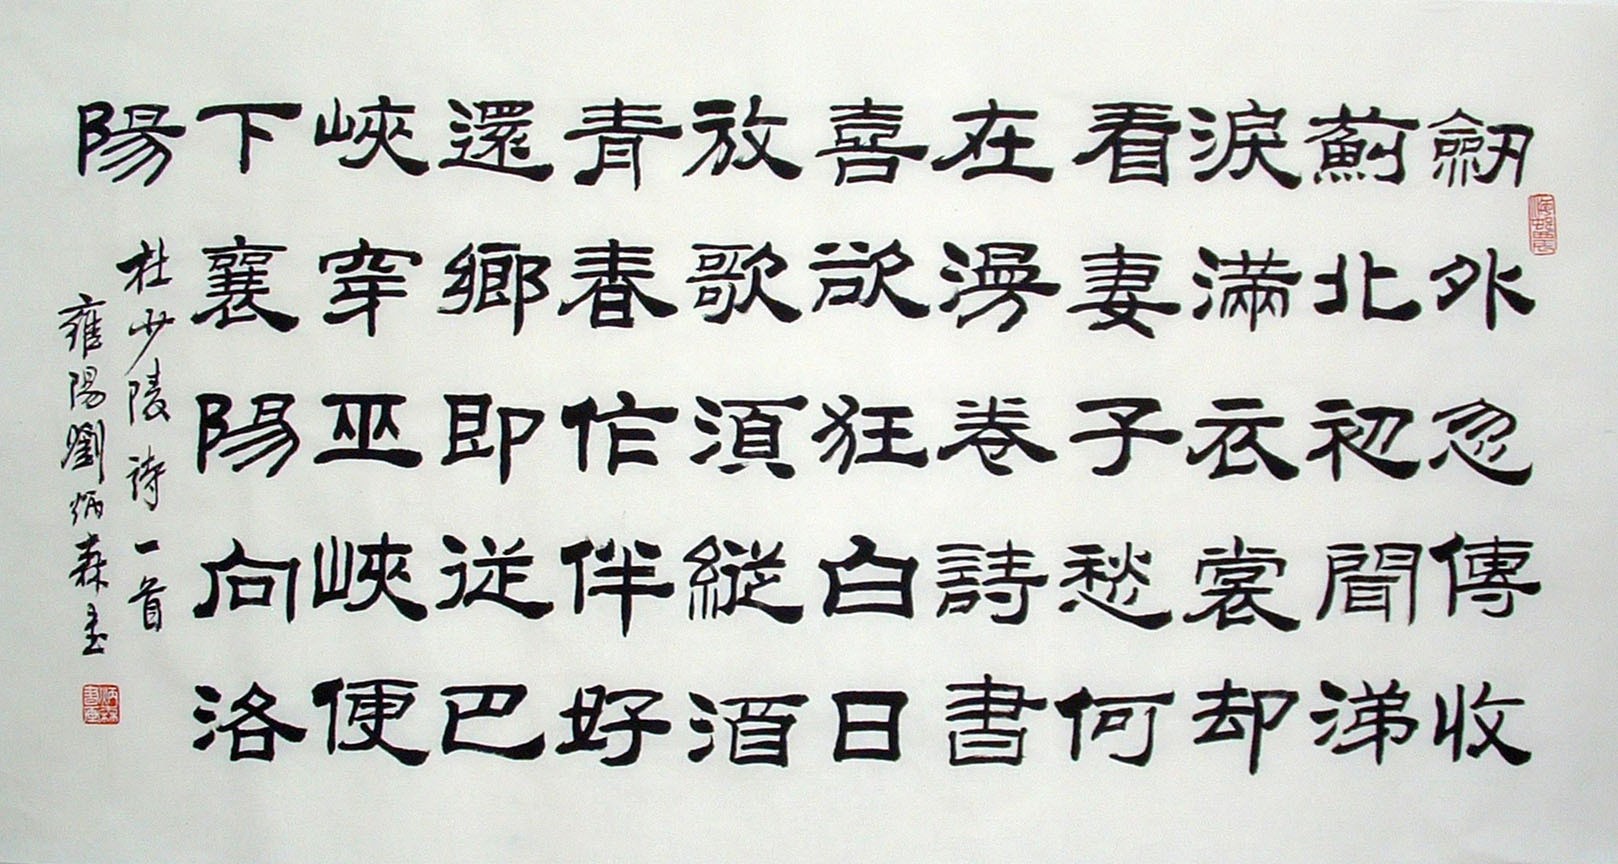 劒外忽傳收
薊北初聞涕
淚滿衣裳却
看妻子愁何
在漫卷詩書
喜欲狂白日
放歌須縱酒
青春作伴好
還鄉即從巴
峽穿巫峽便
下襄陽向洛
陽
杜少陵詩一首
雍陽劉炳森書
炳森書画